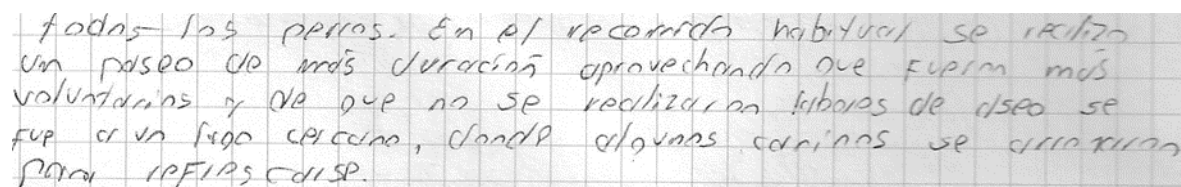 todos los perros. En el recorrido habitual se realizo
un paseo de más duración aprovechando que fueron más
voluntarios y de que no se realizaron labores de aseo se
fue a un lago cercano, donde algunos caninos se arrojaron
para refrescarse.